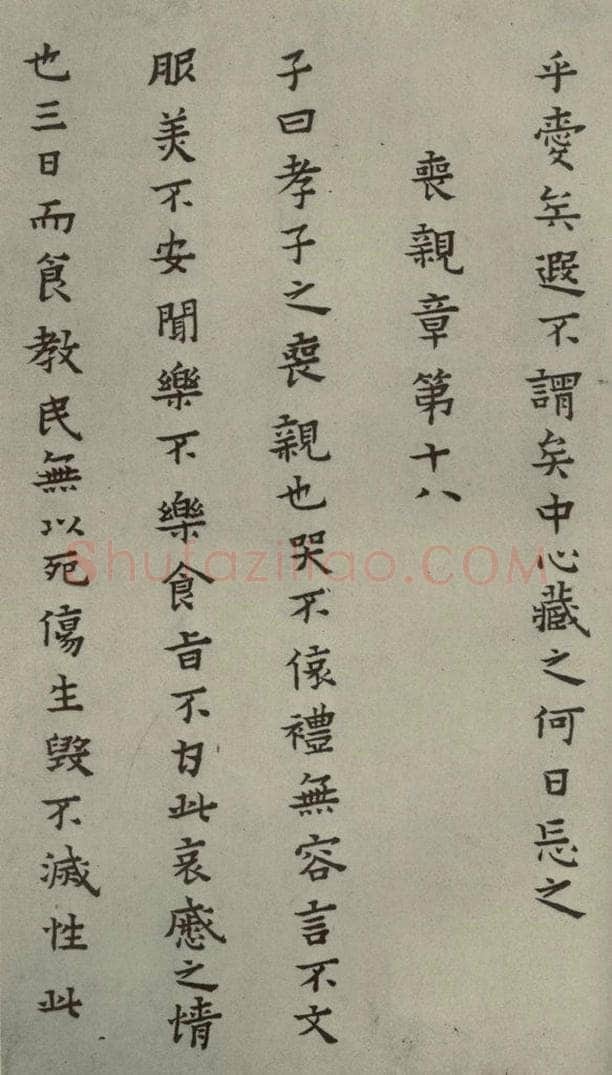 乎愛矣遐不謂矣中心藏之何日忘之
喪親章第十八
子曰孝子之喪親也哭不偯禮無容言不文
服美不安聞樂不樂食旨不甘此哀慼之情
也三日而食教民無以死傷生毀不滅性此
Shufaziliao.COM